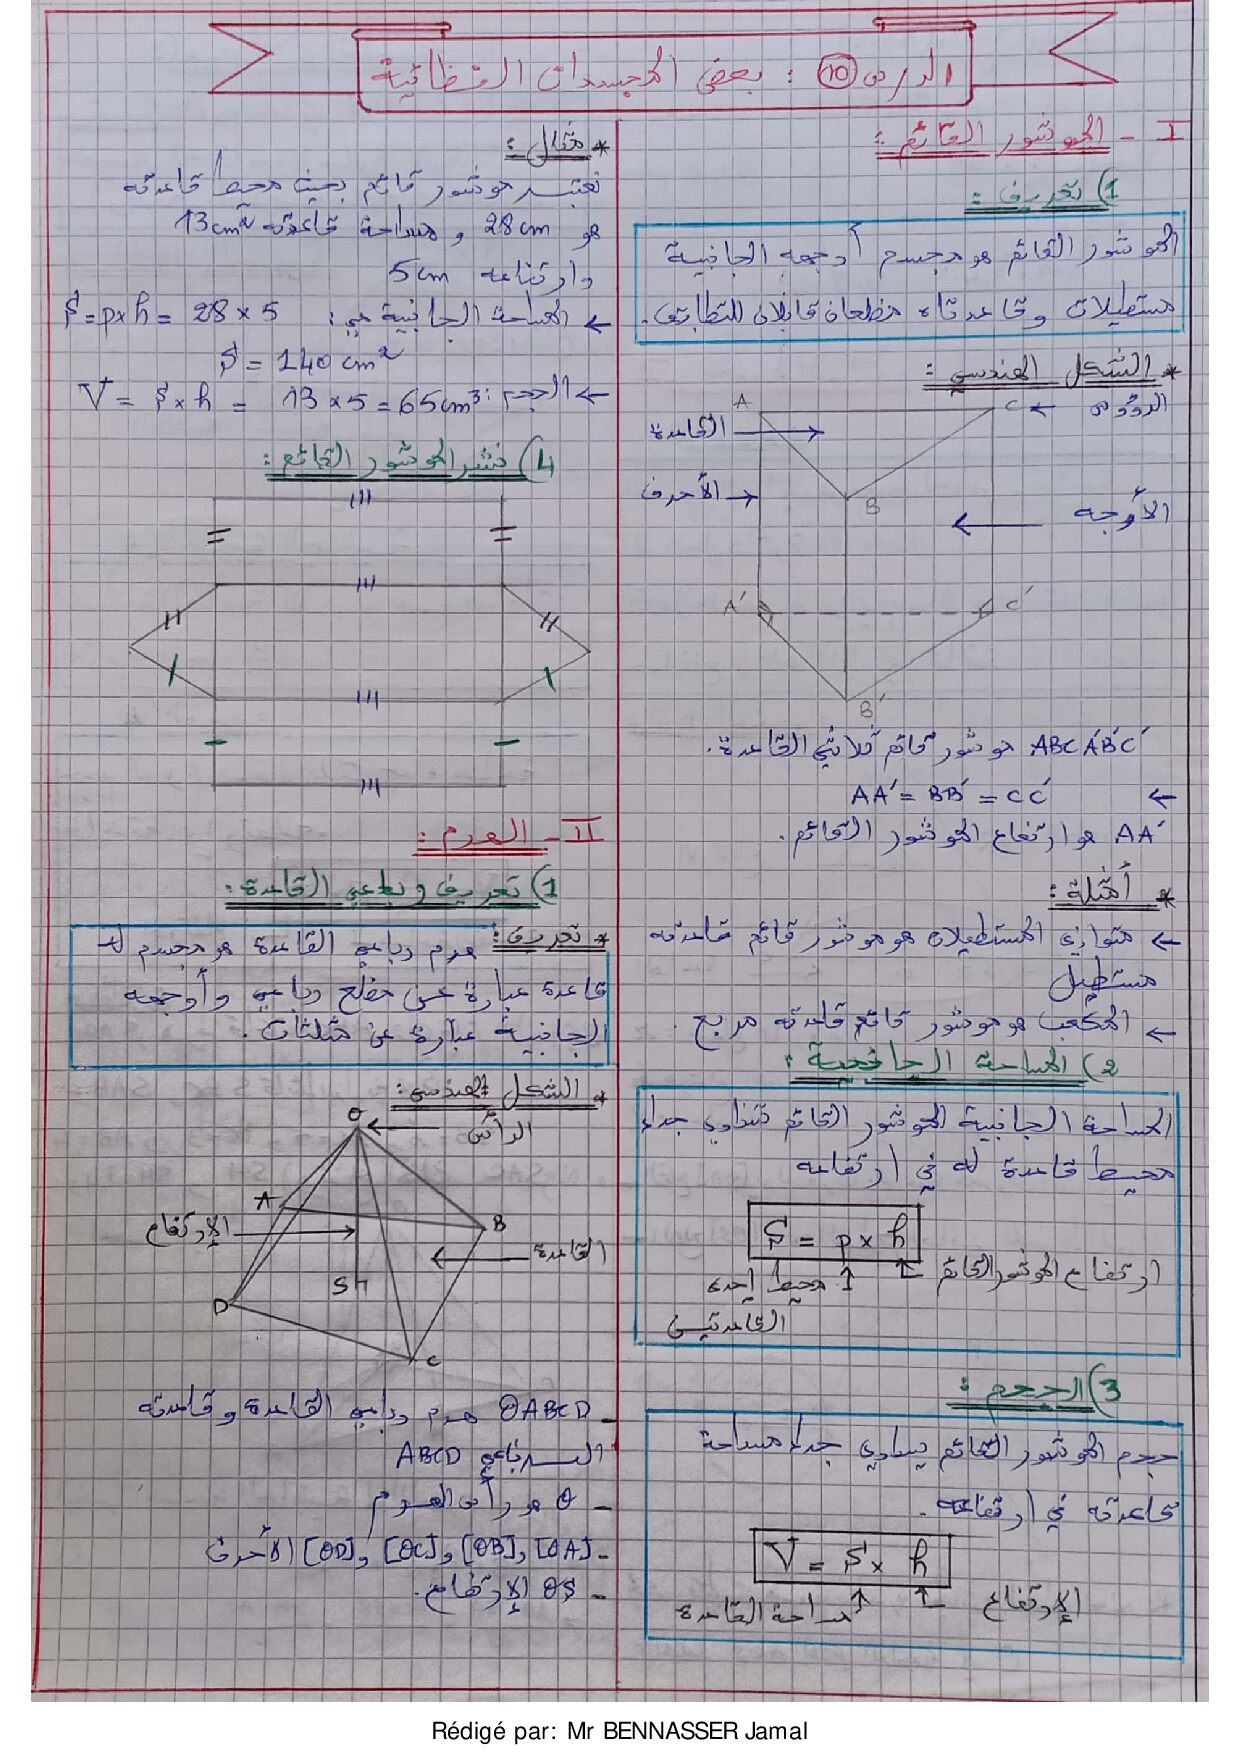 الدرس 10 : بعض المجسمات الفضائية
I - الموشور القائم :
1) تعريف :
الموشور القائم هو مجسم أوجهه الجانبية
مستطيلات وقاعدتاه مضلعان قابلان للتطابق.
* الشكل الهندسي :
A
C
الرؤوس
القاعدة
الأحرف
B
الأوجه
A'
C'
B'
ABCA'B'C' موشور قائم ثلاثي القاعدة.
← AA' = BB' = CC'
AA' هو ارتفاع الموشور القائم.
* أمثلة :
← متوازي المستطيلات هو موشور قائم قاعدته
مستطيل
← المكعب هو موشور قائم قاعدته مربع.
2) المساحة الجانبية :
المساحة الجانبية للموشور القائم تساوي جداء
محيط قاعدة له في ارتفاعه
S = p × h
ارتفاع الموشور القائم
محيط إحدى
القاعدتين
3) الحجم :
حجم الموشور القائم يساوي جداء مساحة
قاعدته في ارتفاعه.
V = S × h
الإرتفاع
مساحة القاعدة
* مثال :
نعتبر موشور قائم بحيث محيط قاعدته
هو 28cm و مساحة قاعدته 13cm²
وارتفاعه 5cm
← المساحة الجانبية هي : S = p×h = 28 × 5
S = 140 cm²
← الحجم : V = S × h = 13 × 5 = 65cm³
4) نشر الموشور القائم :
II - الهرم :
1) تعريف رباعي القاعدة.
* تعريف : هرم رباعي القاعدة هو مجسم له
قاعدة عبارة عن مضلع رباعي وأوجهه
الجانبية عبارة عن مثلثات.
* الشكل الهندسي :
O
الرأس
A
B
الإرتفاع
القاعدة
S
H
D
C
- OABCD هرم رباعي القاعدة وقاعدته
الرباعي ABCD
- O هو رأس الهرم
- [OA], [OB], [OC], [OD] الأحرف
- OS الإرتفاع.
Rédigé par: Mr BENNASSER Jamal